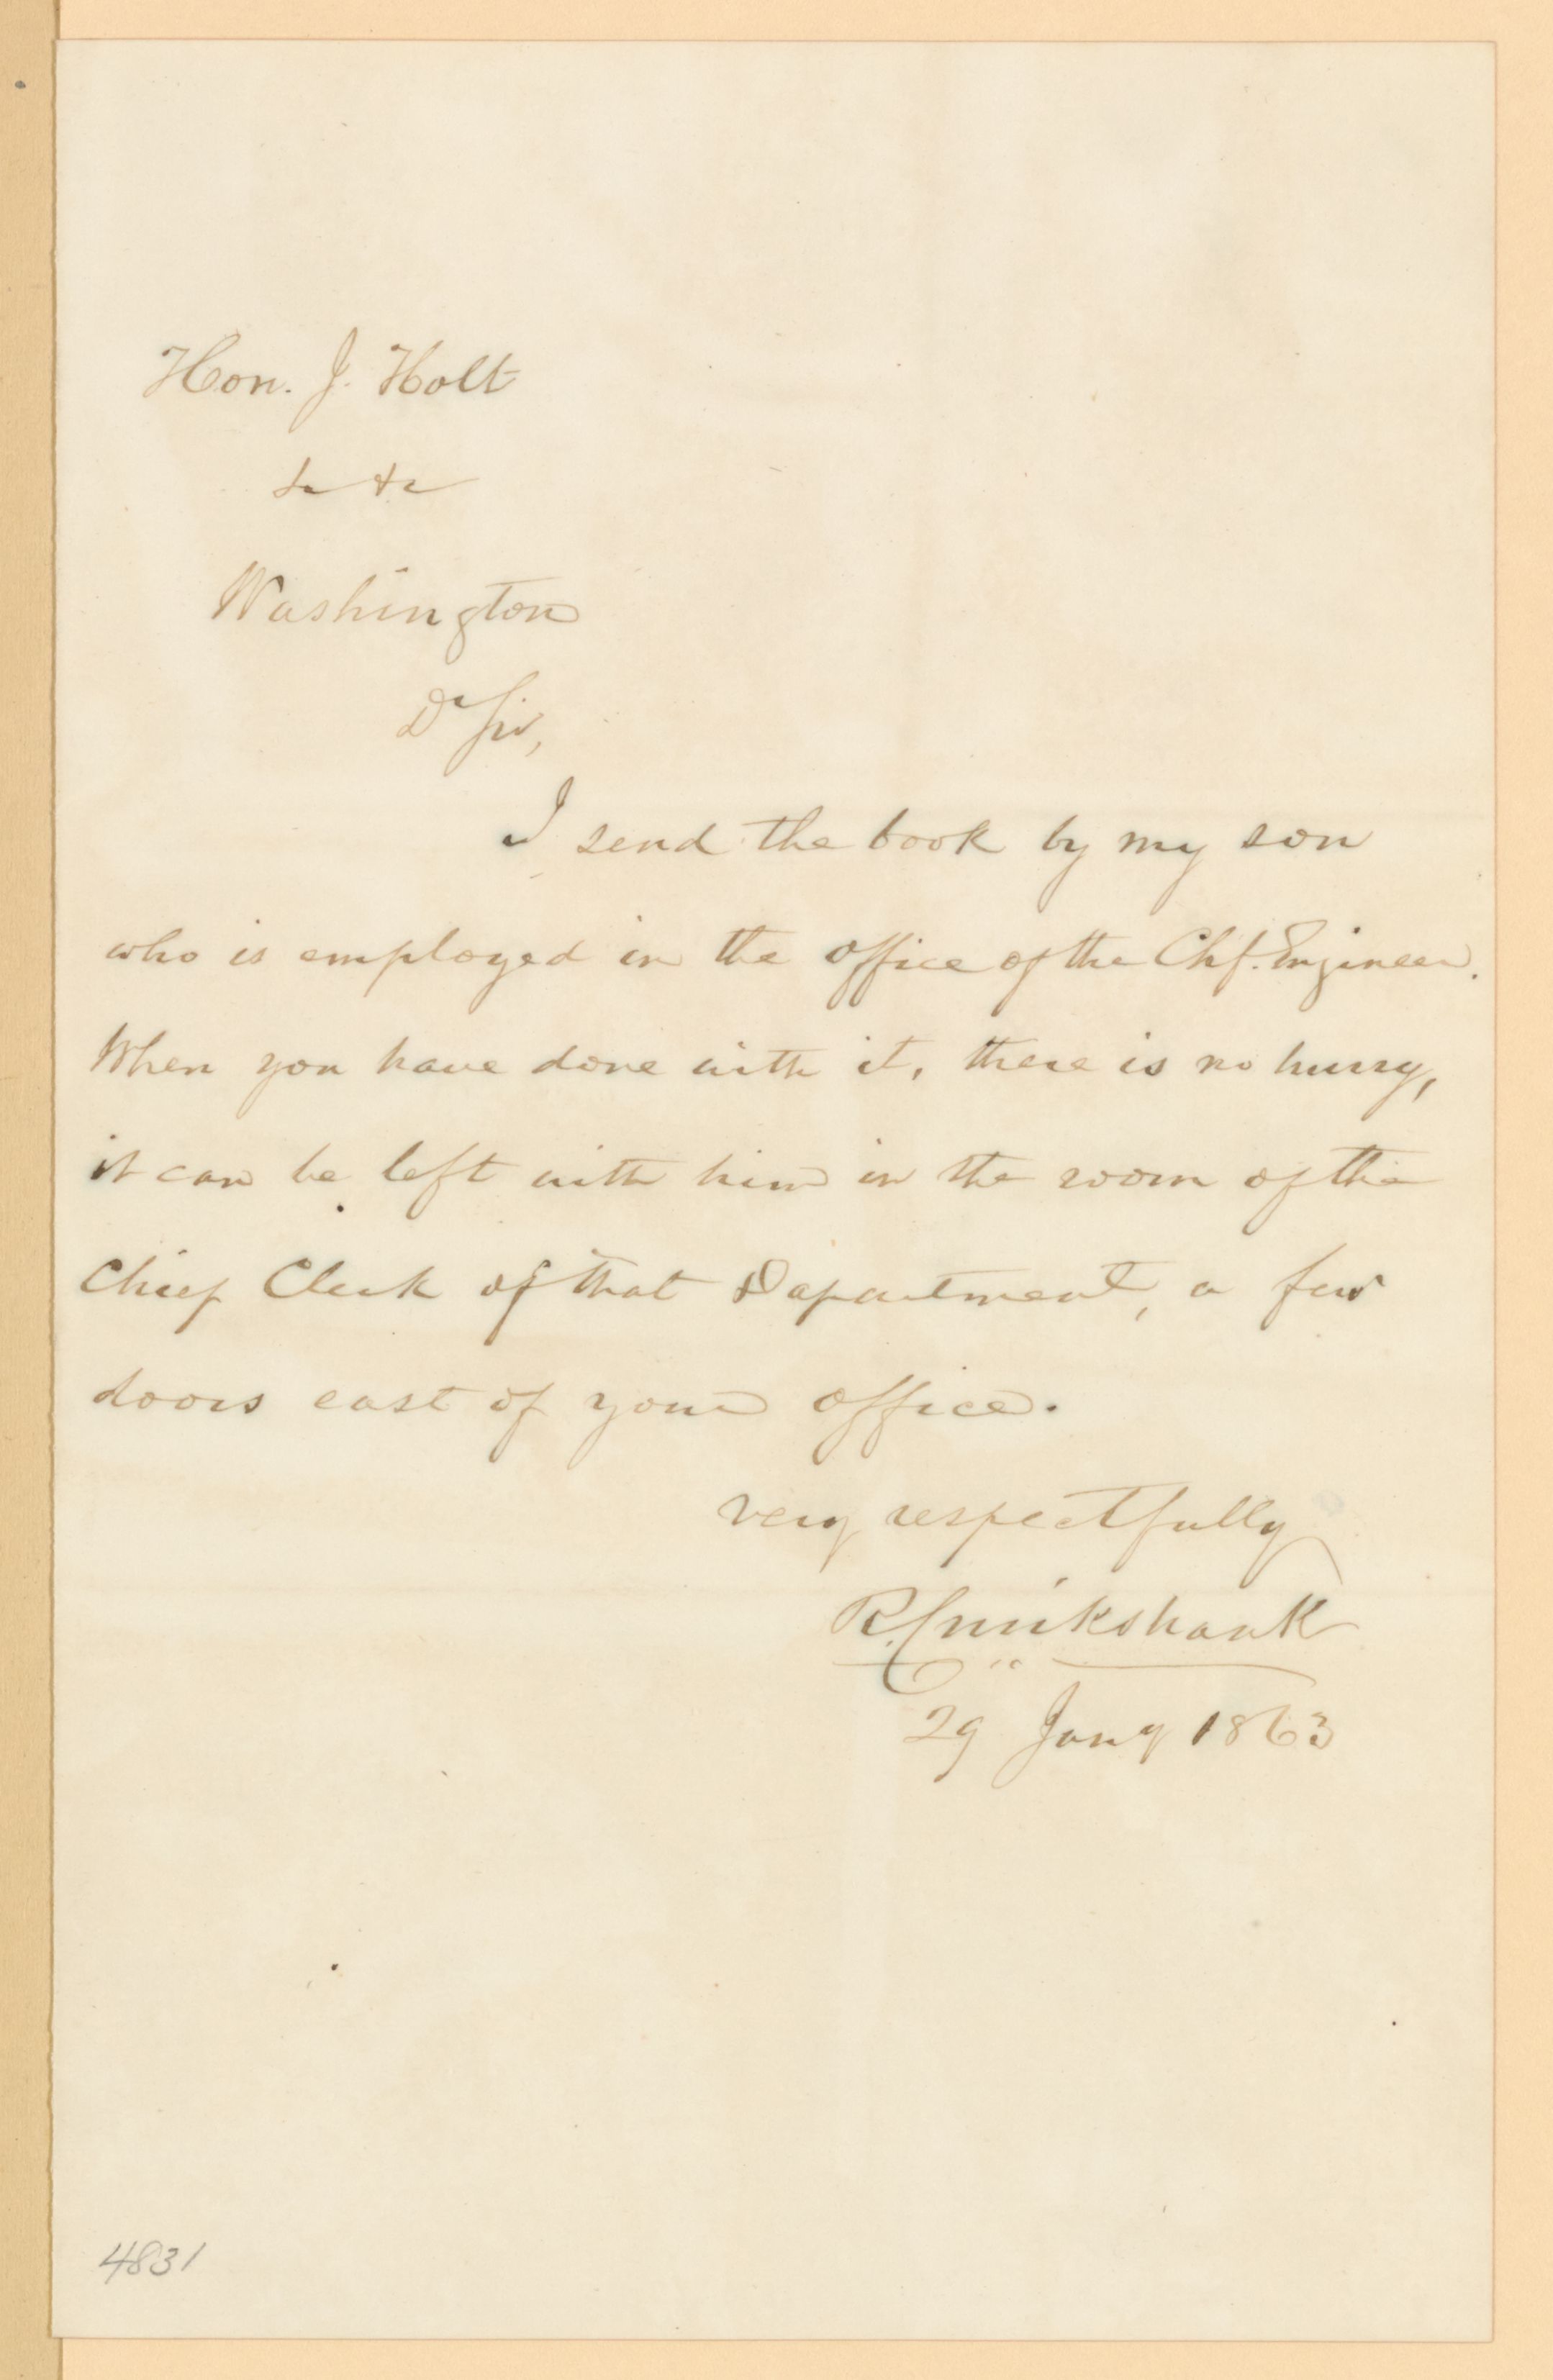 Hon. J. Holt
&c &c
Washington
Dr Sir,
I send the book by my son
who is employed in the office of the Chf. Engineer.
When you have done with it, there is no hurry,
it can be left with him in the room of the
Chief Clerk of that Department, a few
doors east of your office.
very respectfully
R. Cruikshank
29 Jany 1863
4831